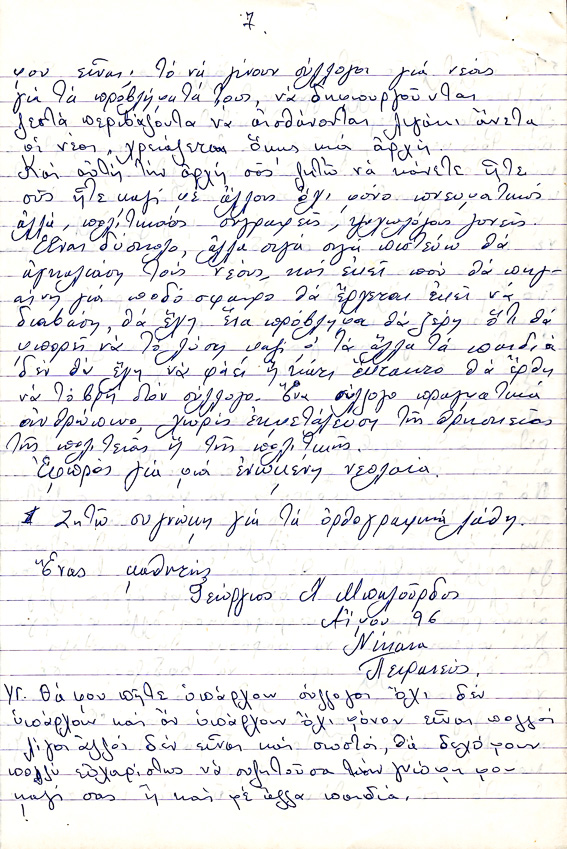 7
μου εἶναι. τό νά γίνουν σύλλογοι γιά νέους
γιά τά πρόβλήματά τους, νά δημιουργοῦνται
ζεστά περιβάλοντα να αἰσθάνονται λιγάκι ἄνετα
οἱ νέοι, χρειάζεται ὅμως μιά ἀρχή.
Καί αὐτή τήν ἀρχή σᾶς ζητῶ νά κάνετε ἤτε
σεῖς ἤτε μαζί μέ ἄλλους ὄχι μόνο πνευματικούς
ἀλλά, πολιτικούς συγραφεῖς, ψυχολόγους γονεῖς
Εἶναι δύσκολο, ἀλλά σιγά σιγά πιστεύω θά
ἀγκαλιάση τούς νέους, καί ἐκεῖ πού θά πηγ-
αίνη γιά ποδόσφαιρο θά ἔρχεται ἐκεῖ νά
διαβάση, θά ἔχη ἕνα πρόβλημα θά ξέρη ὅτι θά
μπορεῖ νά τό λύση μαζί μέ τά ἄλλα τά παιδιά
δέν θά ἔχη νά φάει ἤ κάτι ἔκτακτο θά ἔρθη
νά τό βρῆ στόν σύλλογο. Ἕνα σύλλογο πραγματικά
ἀνθρώπινο, χωρίς ἐκμετάλευση τῆς θρησκείας
τῆς πολιτείας ἤ τῆς πολιτικῆς.
Ἐμπρός γιά μιά ἑνωμένη νεολαία.
Ζητῶ συγνώμη γιά τά ὀρθογραφικά λάθη.
Ἕνας μαθητής
Γεώργιος Μπαλούρδος
Αἴνου 96
Νίκαια
Πειραιεύς.
ΥΓ. Θά μου πῆτε ὑπάρχουν σύλλογοι ὄχι δέν
ὑπάρχουν καί ἄν ὑπάρχουν ὄχι μόνον εἶναι πολλοί
λίγοι ἀλλά δέν εἶναι καί σωστοί, θά δεχόμουν
πολλύ εὐχαρίστως νά συζητοῦσα τήν γνώμη μου
μαζί σας ἤ καί μέ ἄλλα παιδιά.
!